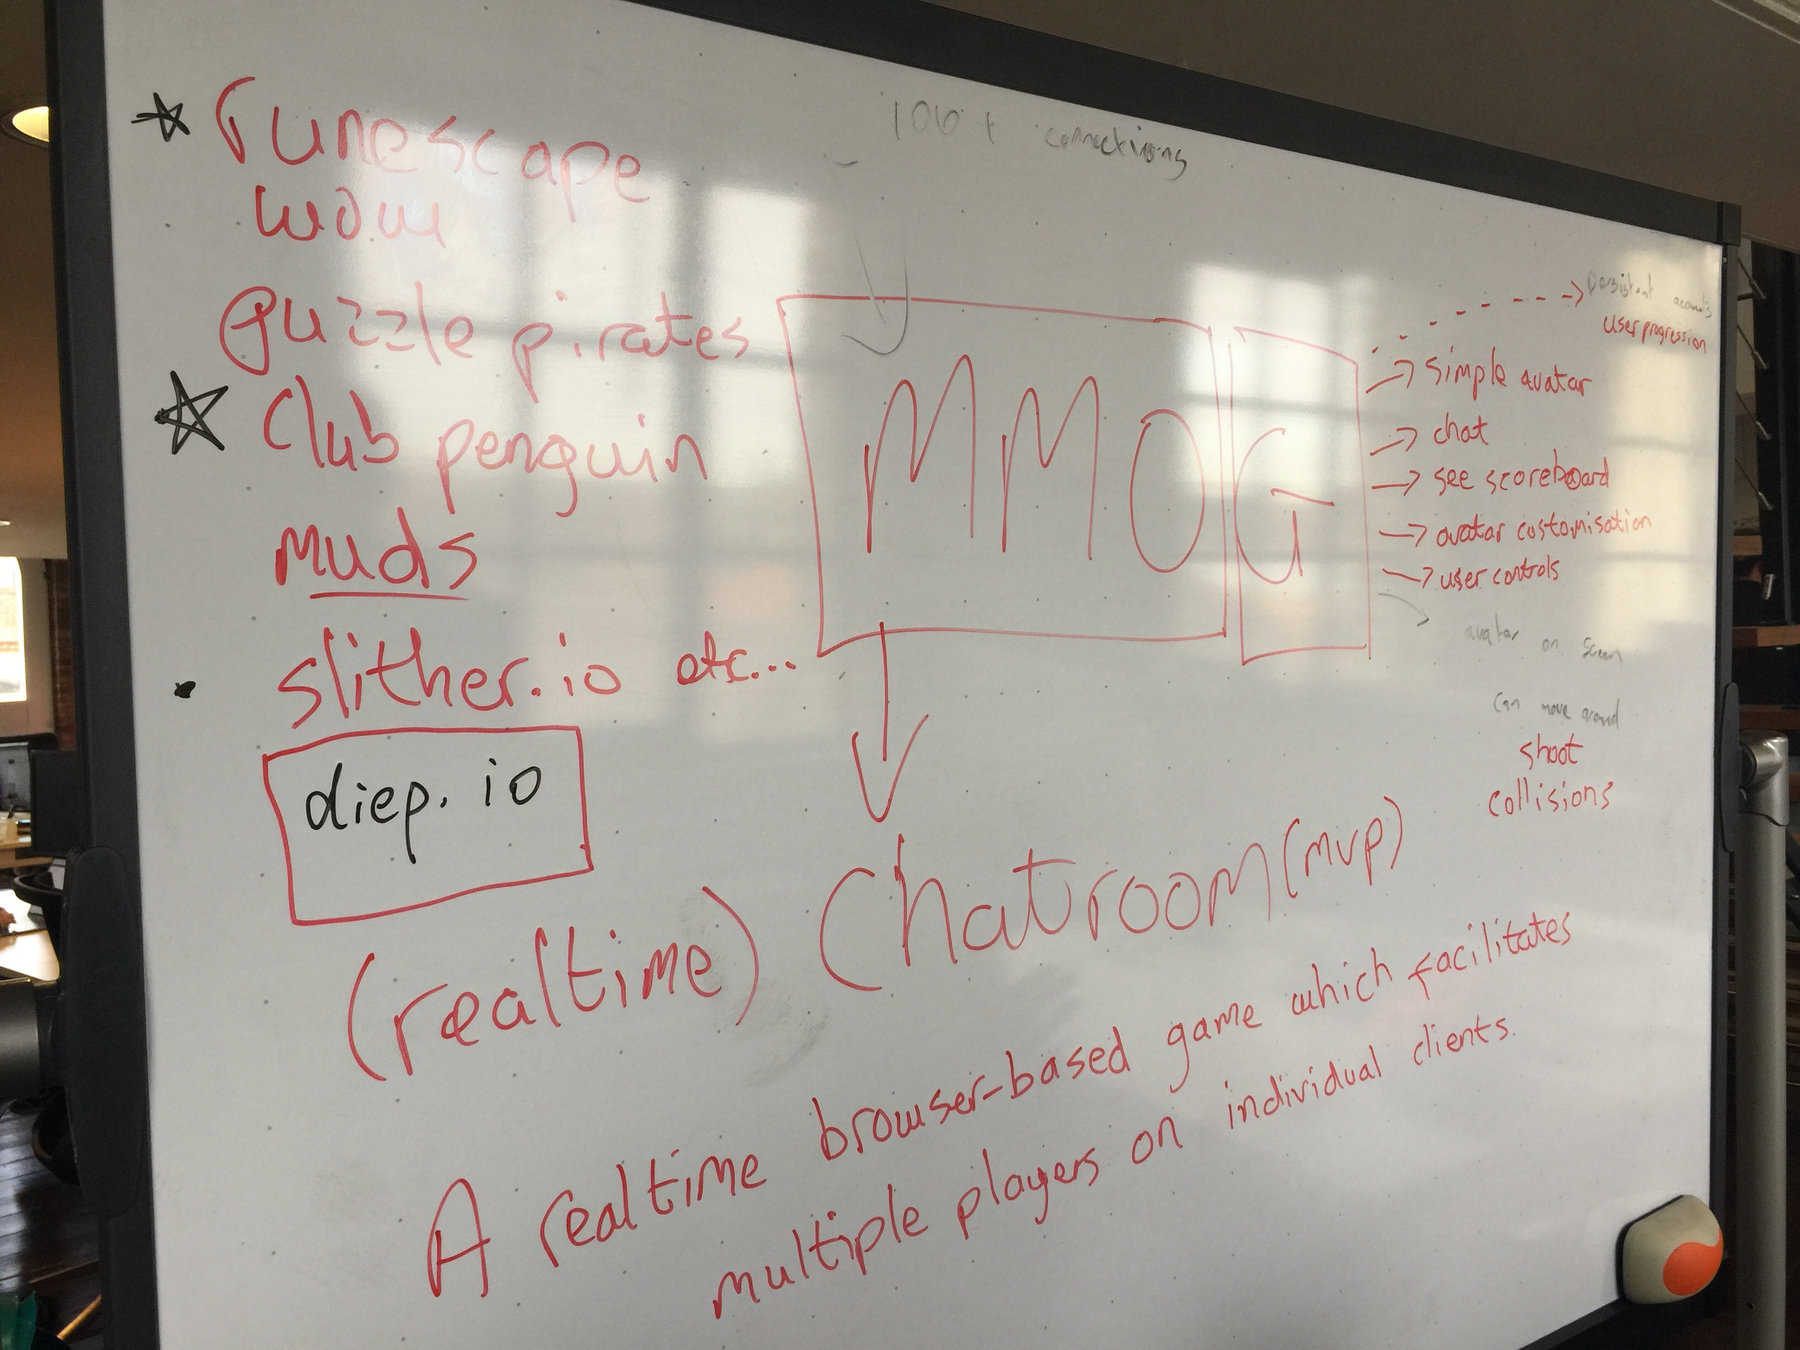 runescape
wow
puzzle pirates
Club penguin
muds
slither.io etc...
diep.io
100+ connections
MMO G
persistent accounts
user progression
simple avatar
chat
see scoreboard
avatar customisation
user controls
avatar on screen
can move around
shoot
collisions
(realtime) Chatroom (mvp)
A realtime browser-based game which facilitates
multiple players on individual clients.